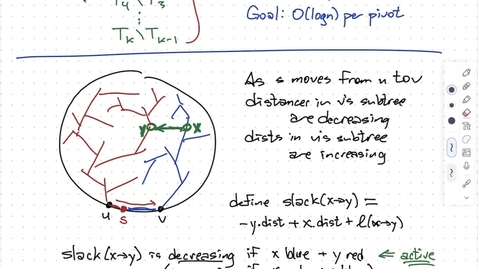 T₄ \ T₃
⋮
Tₖ \ Tₖ₋₁
Goal: O(logn) per pivot
As s moves from u to v
distances in v's subtree
are decreasing
dists in u's subtree
are increasing
y
x
u
s
v
define slack(x→y) =
-y.dist + x.dist + l(x→y)
slack(x→y) is decreasing if x blue + y red ⇐ active